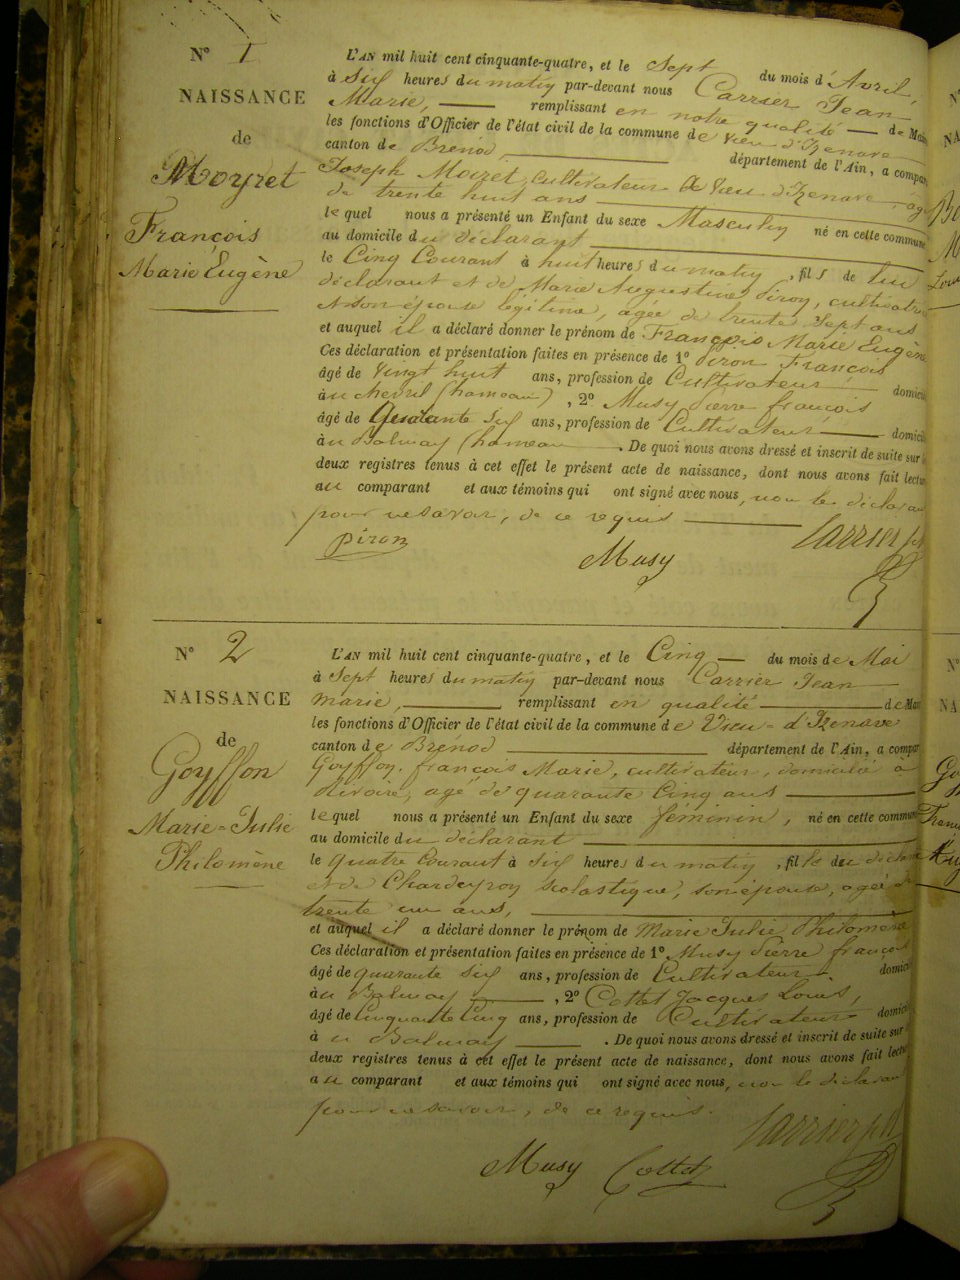 N° 1
NAISSANCE
de
Moyret
François
Marie Eugène
L'AN mil huit cent cinquante-quatre, et le Sept du mois d'Avril,
à Six heures du matin par-devant nous Carrier Jean
Marie, remplissant en notre qualité de Mai
les fonctions d'Officier de l'état civil de la commune de Vieu d'Izenave
canton de Brenod, département de l'Ain, a compar
Joseph Moiret, Cultivateur à Vieu d'Izenave, ag
de trente huit ans
lequel nous a présenté un Enfant du sexe Masculin né en cette commune
au domicile du déclarant
le Cinq Courant à huit heures du matin, fils de lui
déclarant et de Marie Augustine Piroy, cultivatri
et son épouse légitime, agée de trente Sept ans
et auquel il a déclaré donner le prénom de François Marie Eugène
Ces déclaration et présentation faites en présence de 1° piron François
âgé de Vingt huit ans, profession de Cultivateur domicili
à au chevril (hameau), 2° Musy Pierre françois
âgé de Quarante Six ans, profession de Cultivateur domicili
à au Balmay (hameau. De quoi nous avons dressé et inscrit de suite sur
deux registres tenus à cet effet le présent acte de naissance, dont nous avons fait lectur
au comparant et aux témoins qui ont signé avec nous, non le déclaran
pour ne savoir, de ce requis
piron Musy Carrier
N° 2
NAISSANCE
de
Goyffon
Marie-Julie
Philomène
L'AN mil huit cent cinquante-quatre, et le Cinq du mois de Mai
à Sept heures du matin par-devant nous Carrier Jean
marie, remplissant en qualité de Mai
les fonctions d'Officier de l'état civil de la commune de Vieu-d'Izenave
canton de Brénod département de l'Ain, a compar
Goyffon françois Marie, cultivateur, domicilié à
agé de quarante Cinq ans
lequel nous a présenté un Enfant du sexe féminin, né en cette commun
au domicile du déclarant
le quatre Courant à Six heures du matin, fille du déclara
et de Chardeyroy Scolastique, son épouse, agée de
trente un ans,
et auquel il a déclaré donner le prénom de Marie Julie Philomène
Ces déclaration et présentation faites en présence de 1° Musy Pierre françois
âgé de quarante Six ans, profession de Cultivateur, domicili
à au Balmay, 2° Cottet Jacques Louis,
âgé de Cinquante Cinq ans, profession de Cultivateur domicili
à au Balmay. De quoi nous avons dressé et inscrit de suite sur
deux registres tenus à cet effet le présent acte de naissance, dont nous avons fait lectu
au comparant et aux témoins qui ont signé avec nous, non le déclaran
pour ne savoir, de ce requis.
Musy Cottet Carrier